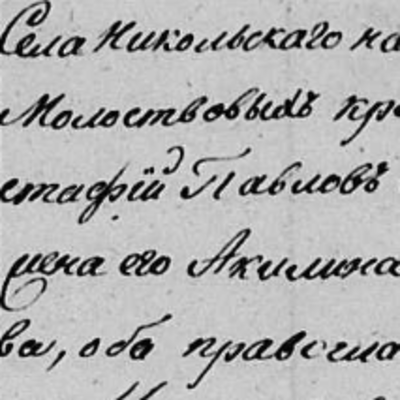 Села Никольскаго на
Молоствовыхъ кр
стафій Павловъ
жена его Акилина
ва, оба правосла